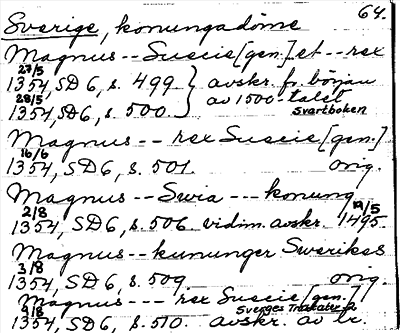 64.
Sverige, konungadöme
Magnus -- Suecie [gen.] et -- rex
27/5
1354, SD 6, s. 499 } avskr. fr. början
28/5 av 1500-talet
1354, SD 6, s. 500 Svartboken
Magnus -- rex Suecie [gen.]
16/6
1354, SD 6, s. 501. orig.
Magnus -- Swia --- konung
2/8 19/5
1354, SD 6, s. 506 vidim. avskr. 1495.
Magnus -- kununger Swerikes
3/8
1354, SD 6, s. 509 orig.
Magnus --- rex Suecie [gen.]
9/8 Sverges Traktater
1354, SD 6, s. 510. avskr. av